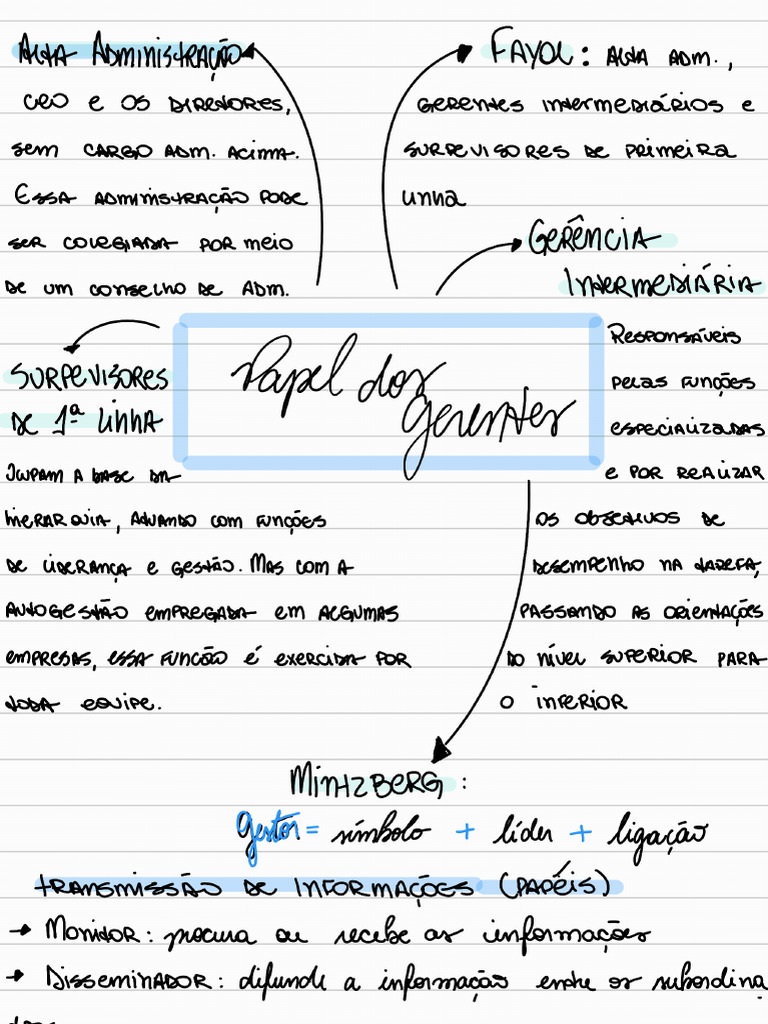 ALTA ADMINISTRAÇÃO
CEO E OS DIRETORES,
SEM CARGO ADM. ACIMA.
ESSA ADMINISTRAÇÃO PODE
SER COLEGIADA POR MEIO
DE UM CONSELHO DE ADM.
FAYOL: ALTA ADM.,
GERENTES INTERMEDIÁRIOS E
SURPEVISORES DE PRIMEIRA
LINHA
GERÊNCIA
INTERMEDIÁRIA
RESPONSÁVEIS
PELAS FUNÇÕES
ESPECIALIZADAS
E POR REALIZAR
OS OBJETIVOS DE
DESEMPENHO NA TAREFA,
PASSANDO AS ORIENTAÇÕES
DO NÍVEL SUPERIOR PARA
O INFERIOR
Papel dos
gerentes
SURPEVISORES
DE 1ª LINHA
OCUPAM A BASE DA
HIERARQUIA, ATUANDO COM FUNÇÕES
DE LIDERANÇA E GESTÃO. MAS COM A
AUTOGESTÃO EMPREGADA EM ALGUMAS
EMPRESAS, ESSA FUNCÃO É EXERCIDA POR
TODA EQUIPE.
MINTZBERG:
gestor = símbolo + líder + ligação
TRANSMISSÃO DE INFORMAÇÕES (PAPÉIS)
→ MONITOR: procura ou recebe as informações
→ DISSEMINADOR: difunde a informação entre os subordina
dos.